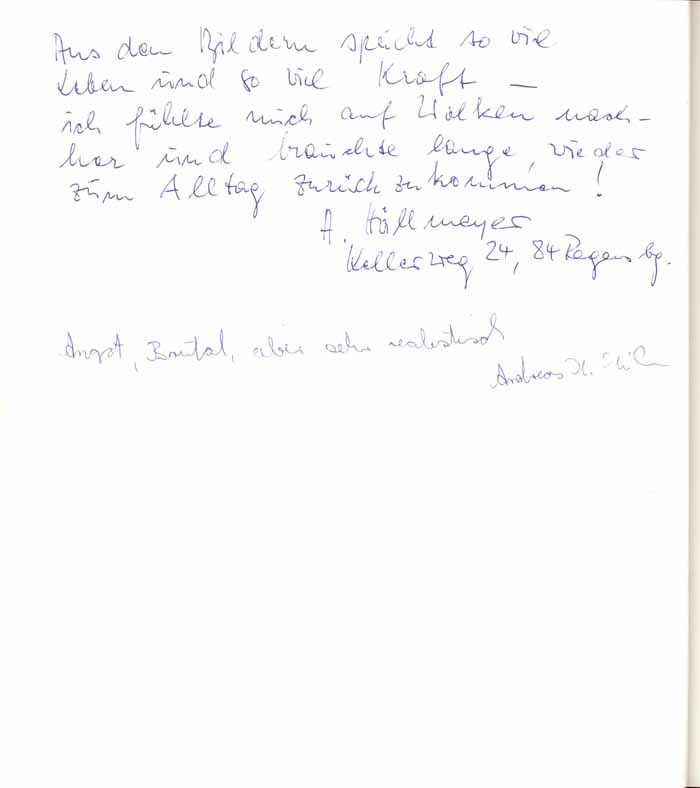 Aus den Bildern spricht so viel
Leben und so viel Kraft –
ich fühlte mich auf Wolken nach-
her und brauchte lange, wieder
zum Alltag zurückzukommen!
A. Höllmeyer
Kellerweg 24, 84 Regensbg.
Angst, Brutal, aber sehr realistisch
Andreas